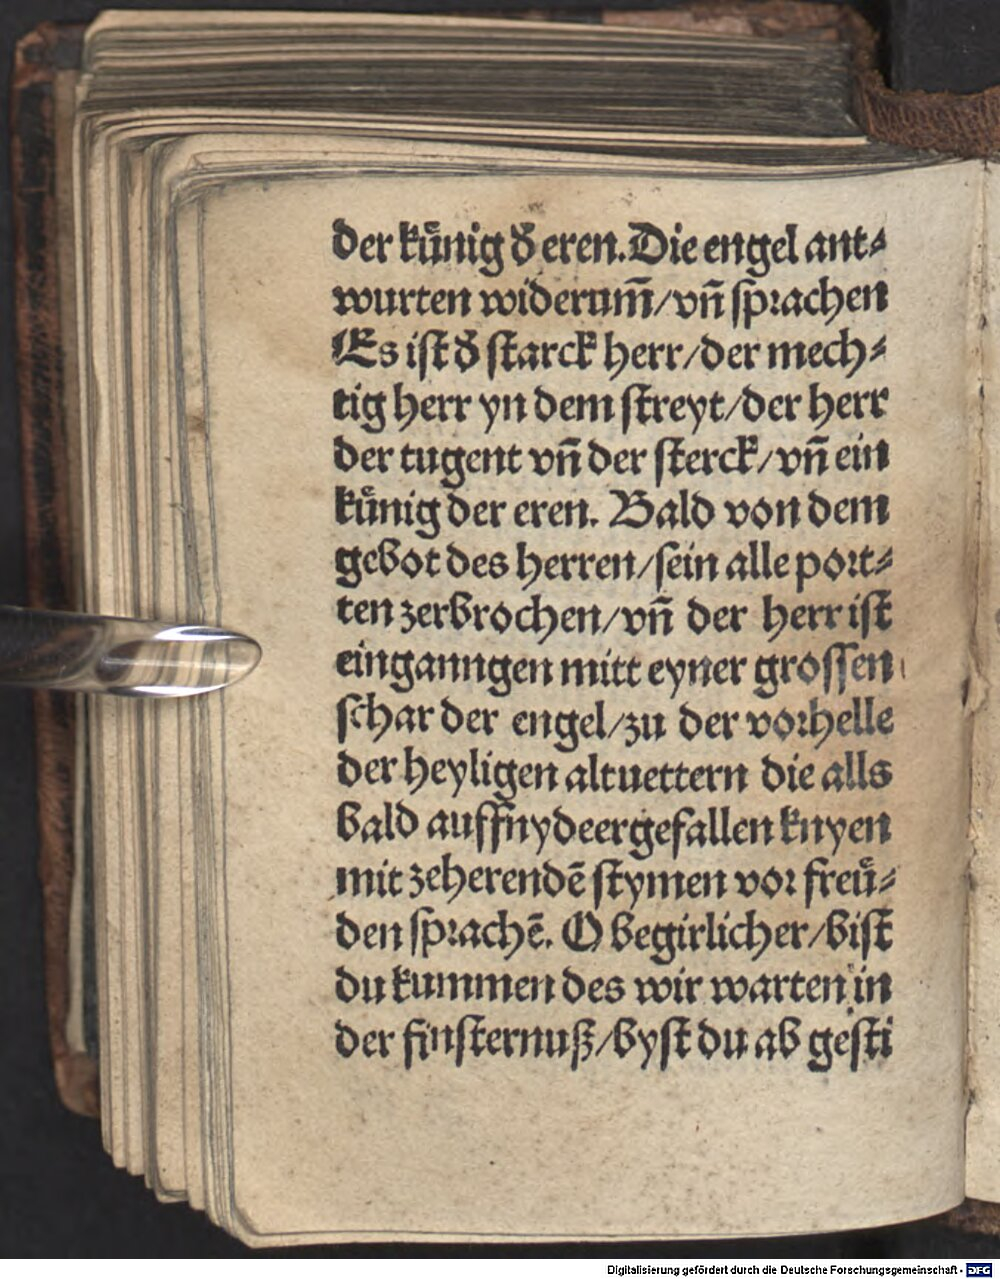 der kuͤnig dˀ eren. Die engel ant⸗
wurten widerum̄/vn̄ ſprachen
Es iſt dˀ ſtarck herr/der mech⸗
tig herr yn dem ſtreyt/der herr
der tugent vn̄ der ſterck/vn̄ ein
kuͤnig der eren. Bald von dem
gebot des herren/ſein alle port⸗
ten zerbrochen/vn̄ der herr iſt
einganngen mitt eyner groſſen
ſchar der engel/zu der vorhelle
der heyligen altuettern die alls
bald auff̄nydeergefallen knyen
mit zeherendē ſtymen vor freuͤ⸗
den ſprachē. O begirlicher/biſt
du kummen des wir warten in
der finſternuß/byſt du ab geſti
Digitalisierung gefördert durch die Deutsche Forschungsgemeinschaft - DFG